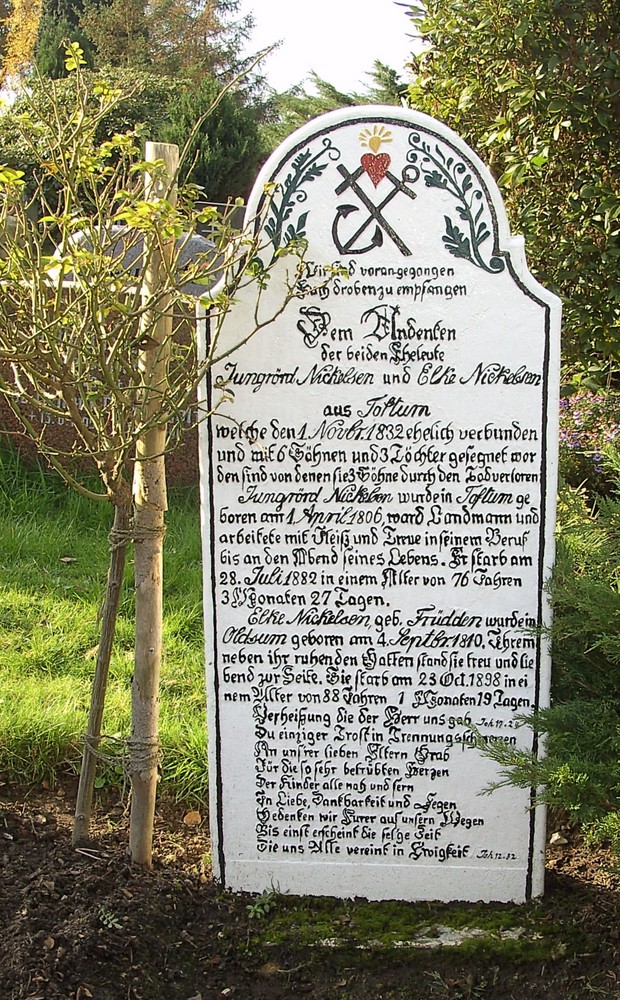 Wir sind vorangegangen
Euch droben zu empfangen
Dem Andenken
der beiden Eheleute
Jungrörd Nickelsen und Elke Nickelsen
aus Toftum
welche den 1. Novbr. 1832 ehelich verbunden
und mit 6 Söhnen und 3 Töchter gesegnet wor
den sind von denen sie 3 Söhne durch den Tod verloren
Jungrörd Nickelsen wurde in Toftum ge
boren am 1. April 1806, ward Landmann und
arbeitete mit Fleiß und Treue in seinem Beruf
bis an den Abend seines Lebens. Er starb am
28. Juli 1882 in einem Alter von 76 Jahren
3 Monaten 27 Tagen.
Elke Nickelsen, geb. Früdden wurde in
Oldsum geboren am 4. Septbr. 1810. Ihrem
neben ihr ruhenden Gatten stand sie treu und lie
bend zur Seite. Sie starb am 23 Oct. 1898 in ei
nem Alter von 88 Jahren 1 Monaten 19 Tagen.
Verheißung die der Herr uns gab Joh. 17.
Du einziger Trost in Trennungsschmerzen
An unsrer lieben Eltern Grab
Für die so sehr betrübten Herzen
Der Kinder alle nah und fern
In Liebe, Dankbarkeit und Segen
Gedenken wir Eurer auf unsern Wegen
Bis einst erscheint die selge Zeit
Die uns Alle vereint in Ewigkeit Joh. 12. 32